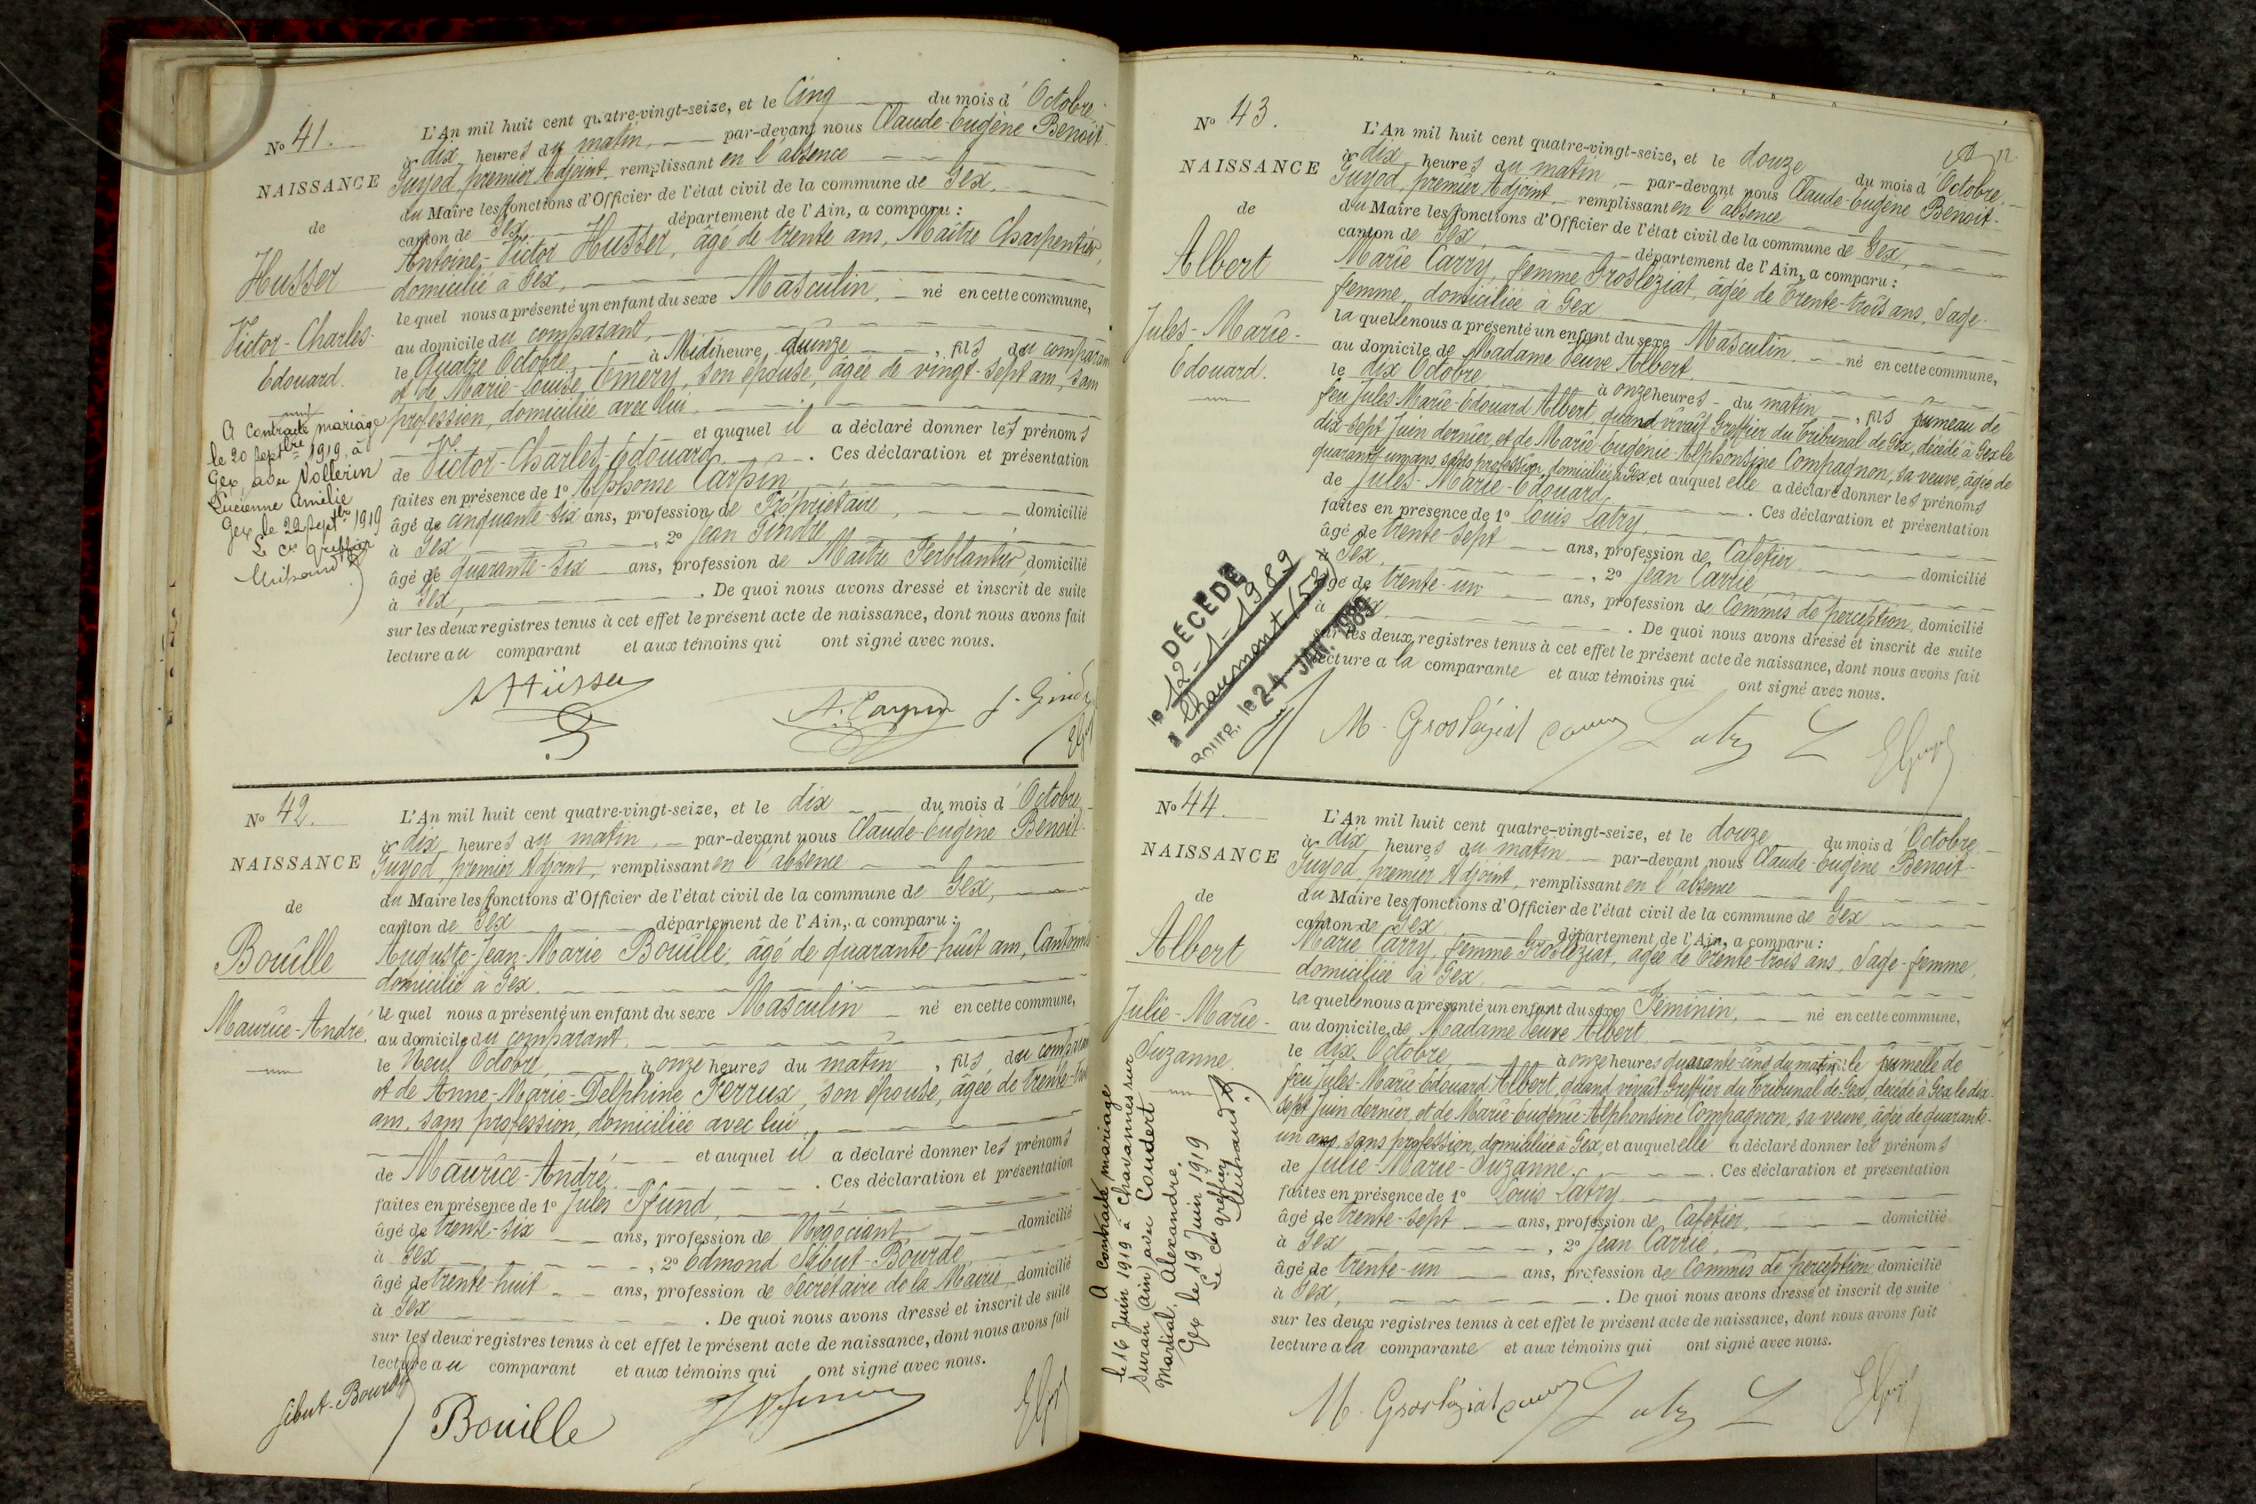 No 41.
NAISSANCE
de
Husser
Victor-Charles-
Edouard.
A contracté mariage
le 20 septbre 1919, à
Gex, avec Nollerin
Lucienne Amélie
Gex le 22 septbr 1919
Le cis greffier
Michaud
L'An mil huit cent quatre-vingt-seize, et le Cinq du mois d'Octobre,
à dix heures du matin, par-devant nous Claude-Eugène Benoit-
Guyod, premier Adjoint, remplissant en l'absence
du Maire les fonctions d'Officier de l'état civil de la commune de Gex,
canton de Gex, département de l'Ain, a comparu :
Antoine-Victor Husser, âgé de trente ans, Maître Charpentier,
domicilié à Gex,
lequel nous a présenté un enfant du sexe Masculin, né en cette commune,
au domicile du comparant,
le Quatre Octobre à Midi heure du , fils du comparant
et de Marie-Louise Emery, son épouse, âgée de vingt-sept ans, sans
profession, domiciliée avec lui.
et auquel il a déclaré donner les prénoms
de Victor-Charles-Edouard. Ces déclaration et présentation
faites en présence de 1° Alphonse Carpin
âgé de cinquante-six ans, profession de Propriétaire, domicilié
à Gex, 2° Jean Gindre
âgé de quarante-six ans, profession de Maître Ferblantier, domicilié
à Gex, . De quoi nous avons dressé et inscrit de suite
sur les deux registres tenus à cet effet le présent acte de naissance, dont nous avons fait
lecture au comparant et aux témoins qui ont signé avec nous.
A Hüsser A. Carpin J. Gindre
No 42.
NAISSANCE
de
Bouille
Maurice-André.
L'An mil huit cent quatre-vingt-seize, et le dix du mois d'Octobre,
à dix heures du matin, par-devant nous Claude-Eugène Benoit-
Guyod, premier Adjoint, remplissant en l'absence
du Maire les fonctions d'Officier de l'état civil de la commune de Gex,
canton de Gex département de l'Ain, a comparu :
Auguste-Jean-Marie Bouille, âgé de quarante-huit ans,
domicilié à Gex.
lequel nous a présenté un enfant du sexe Masculin né en cette commune,
au domicile du comparant,
le Neuf Octobre, à onze heures du matin, fils du comparant
et de Anne-Marie-Delphine Ferrux, son épouse, âgée de trente-
ans, sans profession, domiciliée avec lui,
et auquel il a déclaré donner les prénoms
de Maurice-André. Ces déclaration et présentation
faites en présence de 1° Jules Pfund,
âgé de trente-six ans, profession de Négociant, domicilié
à Gex, 2° Edmond Sibut-Bourde,
âgé de trente-huit ans, profession de Secrétaire de la Mairie domicilié
à Gex . De quoi nous avons dressé et inscrit de suite
sur les deux registres tenus à cet effet le présent acte de naissance, dont nous avons fait
lecture au comparant et aux témoins qui ont signé avec nous.
Sibut-Bourde Bouille
No 43.
NAISSANCE
de
Albert
Jules-Marie-
Edouard.
DÉCÉDÉ
le 12-1-1989
à Chaumont (52)
Bourg, le 24 JAN. 1989
L'An mil huit cent quatre-vingt-seize, et le douze du mois d'Octobre,
à dix heures du matin, par-devant nous Claude-Eugène Benoit-
Guyod, premier Adjoint, remplissant en l'absence
du Maire les fonctions d'Officier de l'état civil de la commune de Gex,
canton de Gex, département de l'Ain, a comparu :
Marie Carry, femme Grosléziat, âgée de trente-trois ans, Sage-
femme, domiciliée à Gex
laquelle nous a présenté un enfant du sexe Masculin né en cette commune,
au domicile de Madame Veuve Albert,
le dix Octobre à onze heures du matin, fils jumeau de
feu Jules-Marie-Edouard Albert, quand vivait Greffier du Tribunal de Gex, décédé à Gex le
dix-sept Juin dernier, et de Marie-Eugénie-Alphonsine Compagnon, sa veuve, âgée de
quarante un ans, sans profession, domiciliée à Gex et auquel elle a déclaré donner les prénoms
de Jules-Marie-Edouard. Ces déclaration et présentation
faites en présence de 1° Louis Latry,
âgé de trente-sept ans, profession de Cafetier, domicilié
à Gex, 2° Jean Carrié,
âgé de trente-un ans, profession de Commis de perception, domicilié
à Gex, . De quoi nous avons dressé et inscrit de suite
sur les deux registres tenus à cet effet le présent acte de naissance, dont nous avons fait
lecture a la comparante et aux témoins qui ont signé avec nous.
M. Grosléziat Latry
No 44.
NAISSANCE
de
Albert
Julie-Marie-
Suzanne.
A contracté mariage
le 16 Juin 1919 à Chavannes sur
Suran (Ain) avec Coudert
Martial, Alexandre.
Gex le 19 Juin 1919
Le cis greffier
Michaud
L'An mil huit cent quatre-vingt-seize, et le douze du mois d'Octobre
à dix heures du matin par-devant nous Claude-Eugène Benoit-
Guyod, premier Adjoint, remplissant en l'absence
du Maire les fonctions d'Officier de l'état civil de la commune de Gex
canton de Gex département de l'Ain, a comparu :
Marie Carry, femme Grosléziat, âgée de trente-trois ans, Sage-femme,
domiciliée à Gex
laquelle nous a présenté un enfant du sexe Féminin, né en cette commune,
au domicile de Madame Veuve Albert
le dix Octobre à onze heures quarante-cinq du matin, fille jumelle de
feu Jules-Marie-Edouard Albert, quand vivait Greffier du Tribunal de Gex, décédé à Gex le dix-
sept Juin dernier, et de Marie-Eugénie-Alphonsine Compagnon, sa veuve, âgée de quarante-
un ans, sans profession, domiciliée à Gex, et auquel elle a déclaré donner les prénoms
de Julie-Marie-Suzanne. Ces déclaration et présentation
faites en présence de 1° Louis Latry
âgé de trente-sept ans, profession de Cafetier, domicilié
à Gex, 2° Jean Carrié,
âgé de trente-un ans, profession de Commis de perception domicilié
à Gex, . De quoi nous avons dressé et inscrit de suite
sur les deux registres tenus à cet effet le présent acte de naissance, dont nous avons fait
lecture a la comparante et aux témoins qui ont signé avec nous.
M. Grosléziat Latry